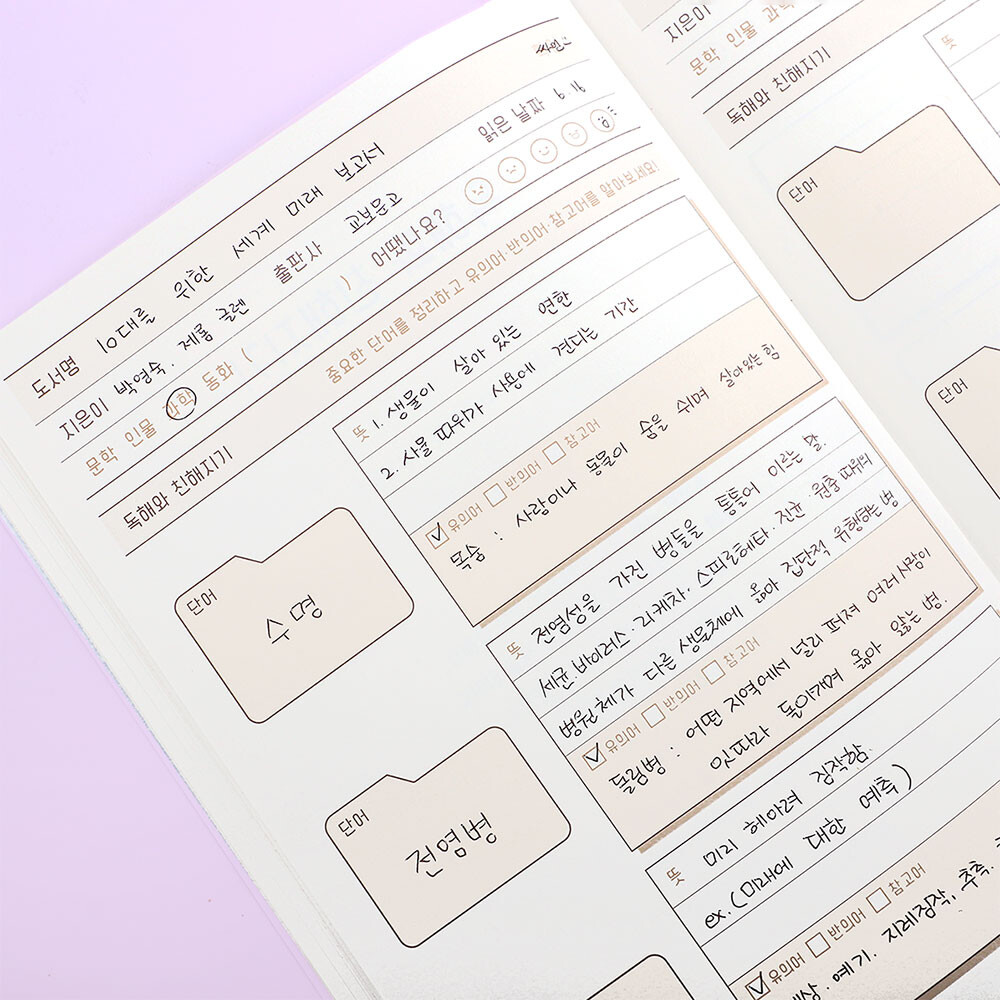 도서명 10대를 위한 세계 미래 보고서
지은이 박영숙. 제롬 글렌 출판사 교보문고 읽은 날짜 6.16
문학 인물 과학 동화 ( ) 어땠나요?
독해와 친해지기 중요한 단어를 정리하고 유의어·반의어·참고어를 알아보세요!
단어
수명
뜻 1. 생물이 살아 있는 연한
2. 사물 따위가 사용에 견디는 기간
유의어 반의어 참고어
목숨 : 사람이나 동물이 숨을 쉬며 살아있는 힘
단어
전염병
뜻 전염성을 가진 병들을 통틀어 이르는 말.
세균. 바이러스. 리케차, 스피로헤타. 진균. 원충 따위의
병원체가 다른 생물체에 옮아 집단적 유행하는 병
유의어 반의어 참고어
돌림병 : 어떤 지역에서 널리 퍼져 여러 사람이
잇따라 돌아가며 옮아 앓는 병.
뜻 미리 헤아려 짐작함.
ex. (미래에 대한 예측)
유의어 반의어 참고어
예기. 지레짐작, 추측.
지은이
문학 인물 과학
독해와 친해지기
단어
뜻
단어